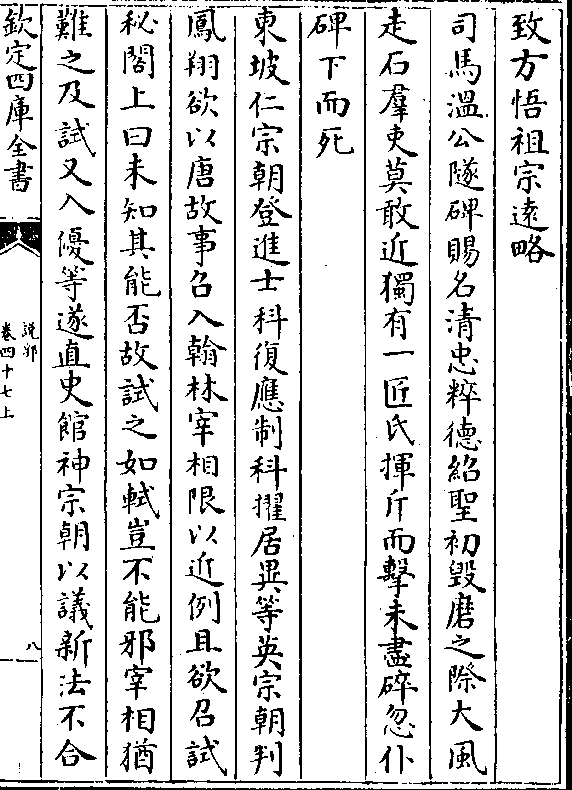 致方悟祖宗遠略
司馬溫公隧碑賜名清忠粹德紹聖初毀磨之際大風
走石羣吏莫敢近獨有一匠氏揮斤而擊未盡碎忽仆
碑下而死
東坡仁宗朝登進士科復應制科擢居異等英宗朝判
鳳翔欲以唐故事召入翰林宰相限以近例且欲召試
秘閣上曰未知其能否故試之如軾豈不能邪宰相猶
難之及試又入優等遂直史館神宗朝以議新法不合
欽定四庫全書
說郛
卷四十七上
八